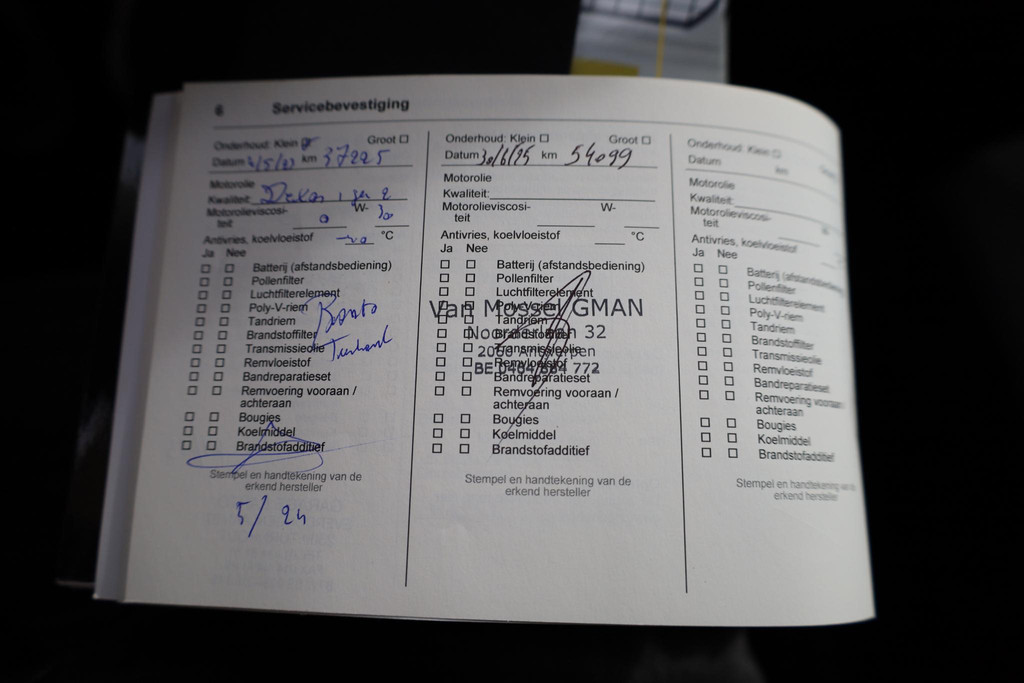 6 Servicebevestiging
Onderhoud: Klein Groot
Datum km 37225
Motorolie
Kwaliteit:
Motorolieviscosi- W-
teit 0 30
Antivries, koelvloeistof °C
Ja Nee
Batterij (afstandsbediening)
Pollenfilter
Luchtfilterelement
Poly-V-riem
Tandriem
Brandstoffilter
Transmissieolie
Remvloeistof
Bandreparatieset
Remvoering vooraan /
achteraan
Bougies
Koelmiddel
Brandstofadditief
Stempel en handtekening van de
erkend hersteller
5/24
Onderhoud: Klein Groot
Datum 30/6/25 km 54099
Motorolie
Kwaliteit:
Motorolieviscosi- W-
teit
Antivries, koelvloeistof °C
Ja Nee
Batterij (afstandsbediening)
Pollenfilter
Luchtfilterelement
Poly-V-riem
Tandriem
Brandstoffilter
Transmissieolie
Remvloeistof
Bandreparatieset
Remvoering vooraan /
achteraan
Bougies
Koelmiddel
Brandstofadditief
Van Mossel GMAN
32
Antwerpen
772
Stempel en handtekening van de
erkend hersteller
Onderhoud: Klein
Datum km
Motorolie
Kwaliteit:
Motorolieviscosi- W-
teit
Antivries, koelvloeistof
Ja Nee
Batterij (afstandsbediening)
Pollenfilter
Luchtfilterelement
Poly-V-riem
Tandriem
Brandstoffilter
Transmissieolie
Remvloeistof
Bandreparatieset
Remvoering vooraan
achteraan
Bougies
Koelmiddel
Brandstofadditief
Stempel en handtekening van de
erkend hersteller